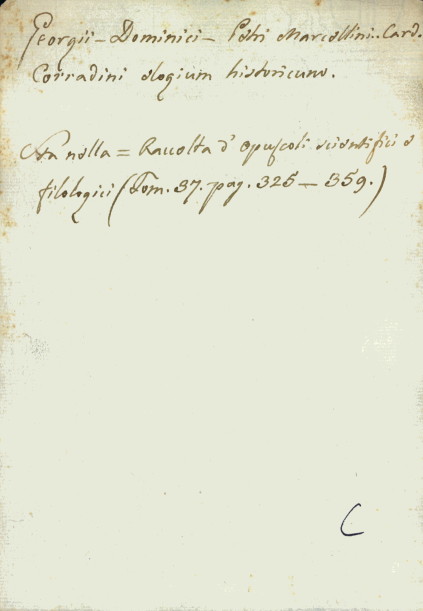 Georgii - Dominici - Petri Marcellini Card.
Corradini elogium historicum.
Sta nella = Raccolta d'opuscoli scientifici e
filologici (Tom. 37. pag. 325 - 359.)
C